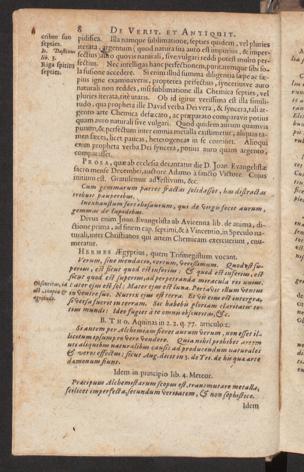 8 DE VERIT. ET ANTIQUIT.
septies.
pusifica. Illa nunquā sublimatione, septies quidem, vel pluries
iterata argentum; quod natura sua auro est impurius, & imper-
fectius auro quovis naturali, sive vulgari reddi potest multo per-
fectius.
lib. 3.
septies.
la fusione accedere. Si enim illud summa diligentia sæpe ac sæ-
pius igne examinaveris, propterea perfectius, syncerius ve auro
naturali non reddes, nisi sublimatione illa Chemica septies, vel
pluries iterata, ritè utaris.
tudo, qua propheta ille David verba Dei vera, & syncera, tali ar-
gento arte Chemica defæcato, ac præparato comparavit potius
quam auro naturali sive vulgari. Quod quidem autum quamvis
purum, & perfectum inter omnia metalla existimetur, aliquas ta-
men fæces, licet paucas, heterogeneas in se continet. Alioqui
enim propheta verba Dei syncera, potius auro quam argento,
comparasset.
PROSA, quæ ab ecclesia decantatur die D. Joan. Evangelistæ
sacro mense Decembr. auctore Adamo à sancto Victore. Cujus
initium est. Gratulemur ad festivum, &c.
Cum gemmarum partes fractas solidasset, has distractas
tribuit pauperibus.
Inexhaustum fert thesaurum, qui de virgis fecit aurum,
gemmas de lapidibus.
Divus enim Joan. Evangelista ab Avicenna lib. de anima, di-
ctione prima, ad finem cap. septimi, & à Vincentio, in Speculo na-
turali, inter Christianos qui artem Chemicam exercuerunt, enu-
meratur.
HERMES Ægyptius, quem Trismegistum vocant.
Verum, sine mendacio, certum, verissimum. Quod est su-
perius, est sicut quod est inferius, & quod est inferius, est
sicut quod est superius, ad perpetranda miracula rei unius.
Pater ejus est sol: Mater ejus est luna. Portavit illum ventus
in ventre suo. Nutrix ejus est terra. Et vis ejus est integra,
si versa fuerit in terram. Sic habebis gloriam claritatis to-
tius mundi: Ideo fugiet à te omnis obscuritas, &c.
B. THO. Aquinas in 2. 2. q. 77. articulo 2.
Si autem per Alchimiam fieret aurum verum, non esset il-
licitum ipsum pro vero vendere. Quia nihil prohibet artem
uti aliquibus naturalibus causis ad producendum naturales
& veros effectus; sicut Aug. dicit in 3. de Tri. de his quæ arte
dæmonum fiunt.
Idem in principio lib. 4. Meteor.
Præcipuus Alchemistarum scopus est, transmutare metalla,
scilicet imperfecta, secundum veritatem, & non sophisticè.
Idem